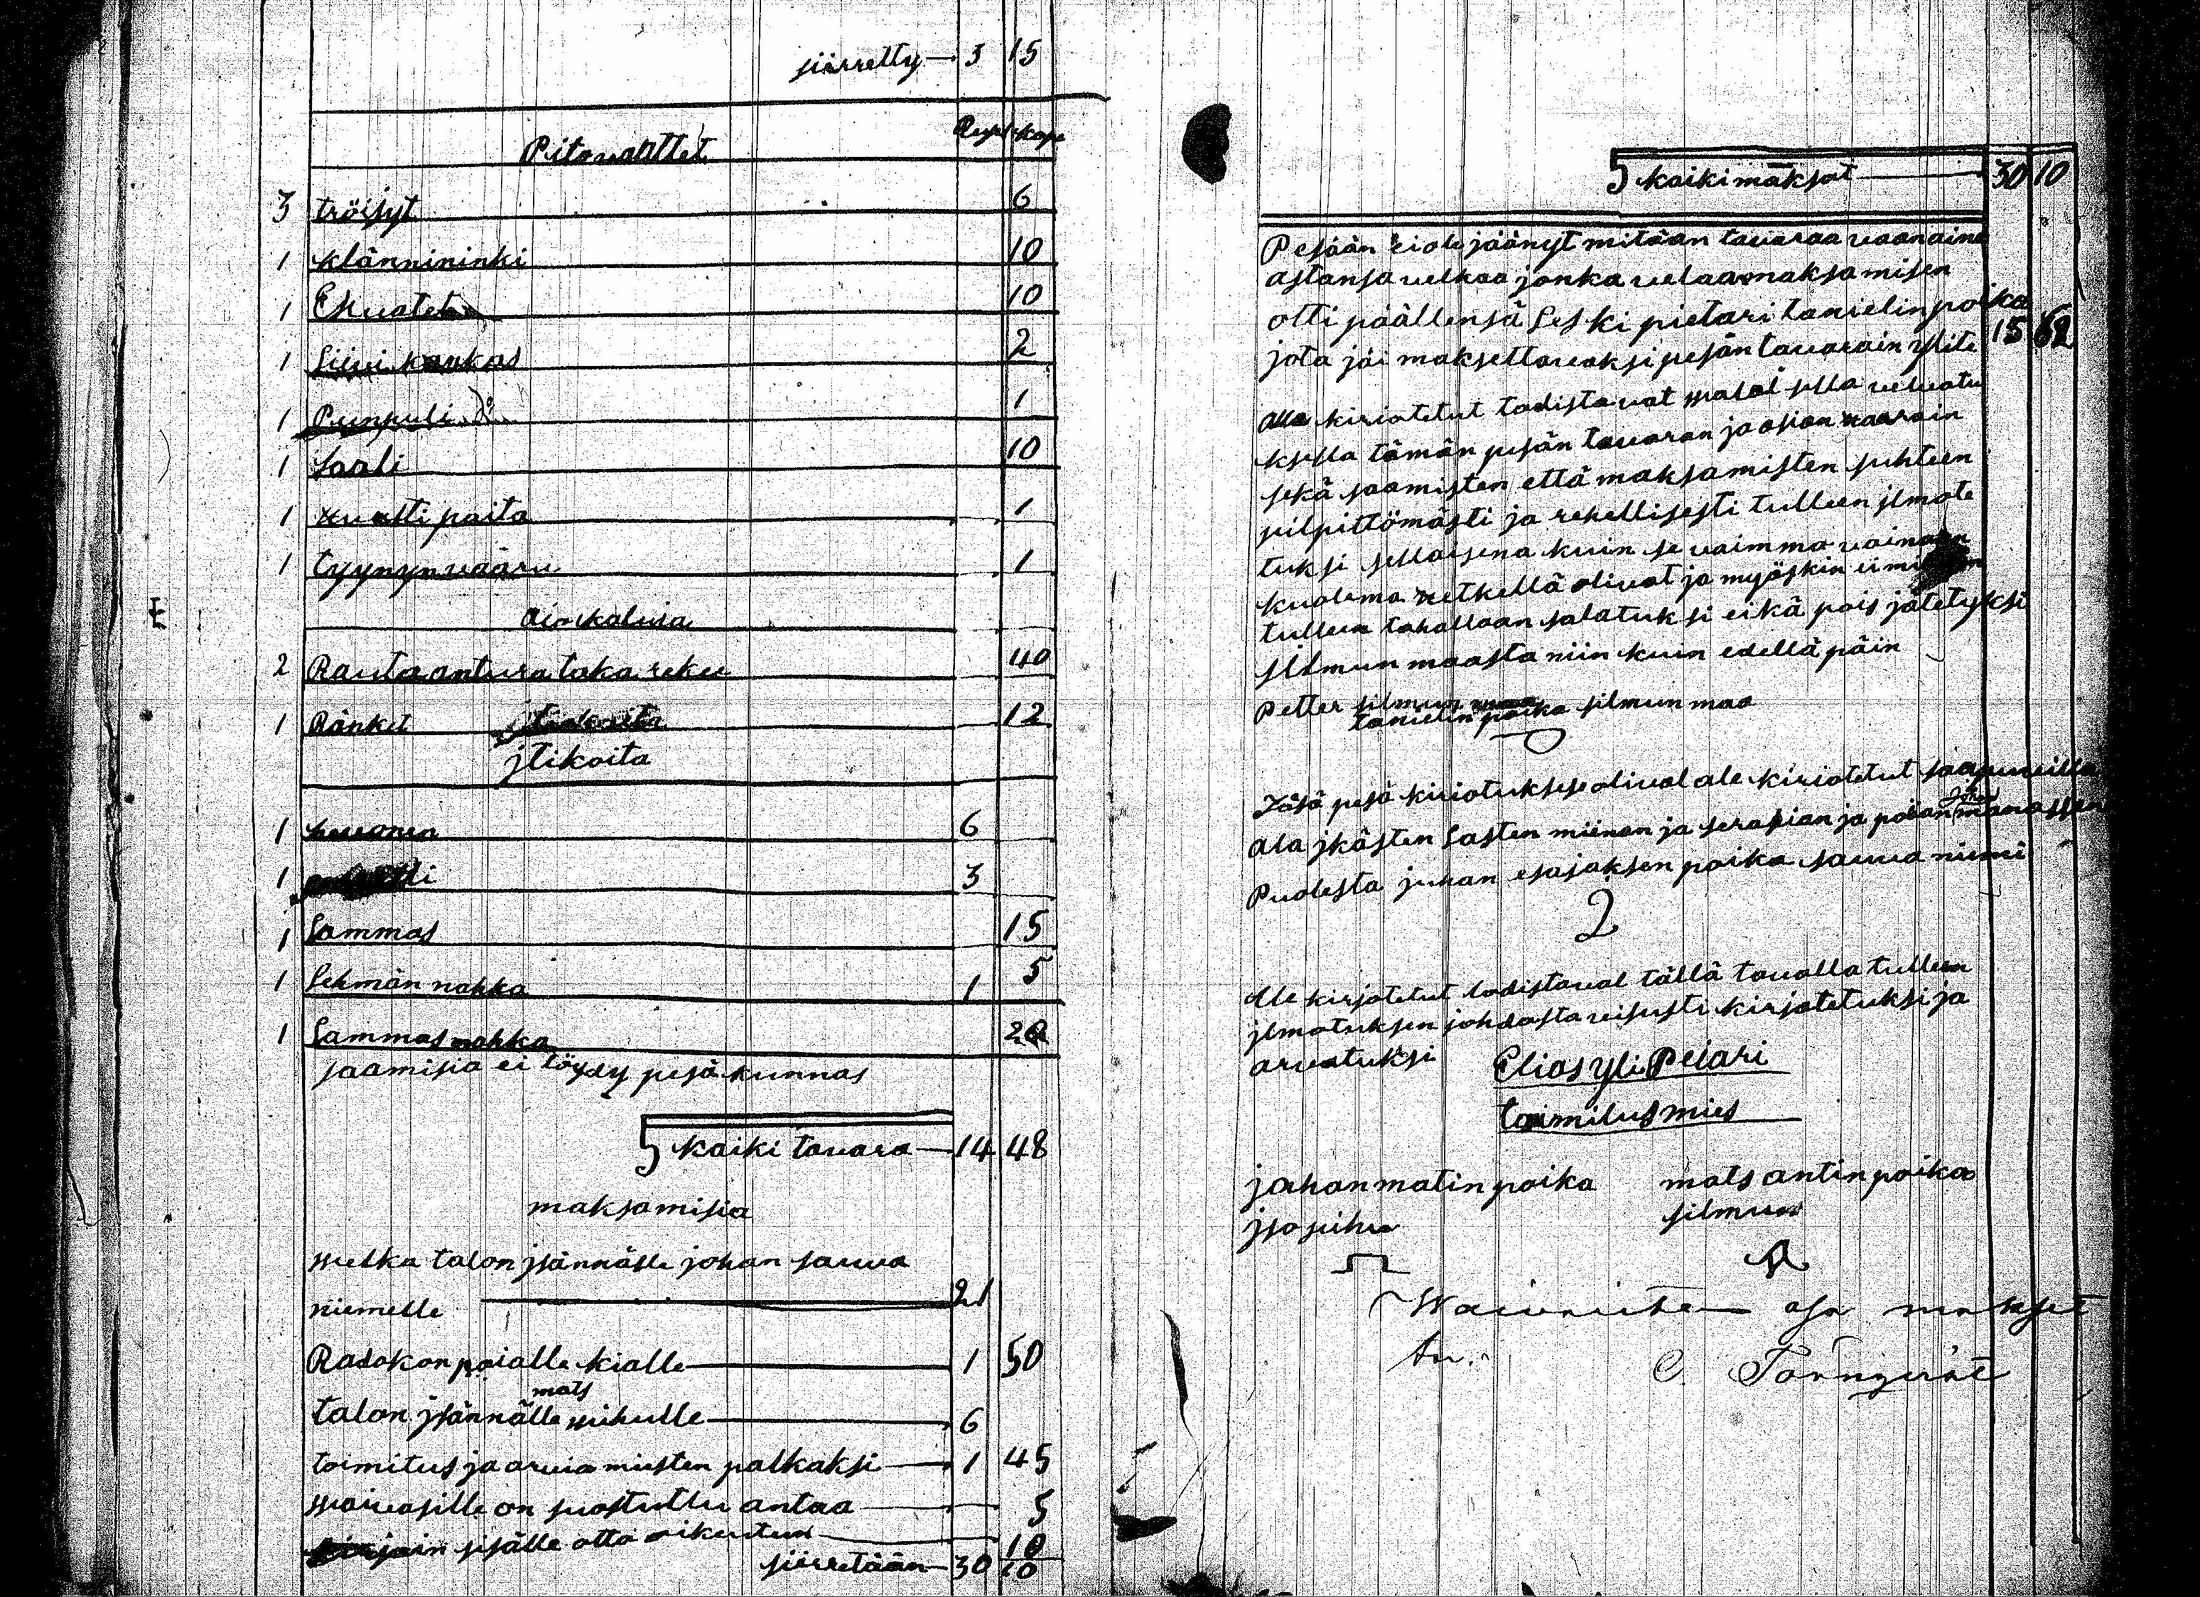 siirretty — 3 15
Pitovatttet
3 tröijyt 6
1 klännininki 10
1 10
1 Liivi kankas 2
1 Punpuli 1
1 saali 10
1 paita 1
1 tyynyn vaaru 1
ajokaluja
2 Rautaantura taka reke 40
1 Ränket 12
jtikoita
1 hevonen 6
1 3
1 Lammas 15
1 Lehmän nahka 1 5
1 Lammas nahka 20
saamisia ei löydy pesäkunnas
S kaiki tavara — 14 48
maksamisia
welka talon jsännälle johan savua
niemelle 21
Rasokon pojalle kialle — 1 50
mats
talon jsännälle wihulle — 6
toimitus ja arvio miesten palkaksi — 1 45
waivasille on suostuttu antaa — 5
sisälle otto oikeuteen — 10
siirretään — 30 10
S kaiki maksot — 30 10
Pesään ei ole jäänyt mitään tavaraa vaan aino
astansa velkaa jonka velaa maksamisen
otti päällensä Leski pietari tanielin poika
jota jäi maksettavaksi pesän tavarain ylite 15 62
alla kiriotetut todistavat walal sella velvotu
ksella tämän pesän tavaran ja asian haarain
sekä saamisten että maksamisten suhteen
vilpittömästi ja rehellisesti tulleen jlmote
tuksi sellaisena kuin se vaimma vainaan
kuolema hetkellä olivat ja myöskin ei mitään
tulleen tahallaan salatuksi eikä pois jätetyksi
silmun maasta niin kuin edellä päin
Petter silmun
tanielin poika silmun maa
Täsä pesä kiriotuksese olivat ale kiriotetut saapuveilla
ala jkästen Lasten miinan ja serafian ja poian manassen
Puolesta juhan esajaksen poika savua niemi
Ale kirjotetut todistavat tällä tavalla tulleen
jlmotuksen johdosta veisusti kirjotetuksi ja
arvatuksi Elias yli Peiari
toimitusmies
johan matin poika mats antin poika
jsopihu silmun
Waivaisten osa makset
tu. C. Törnqvist